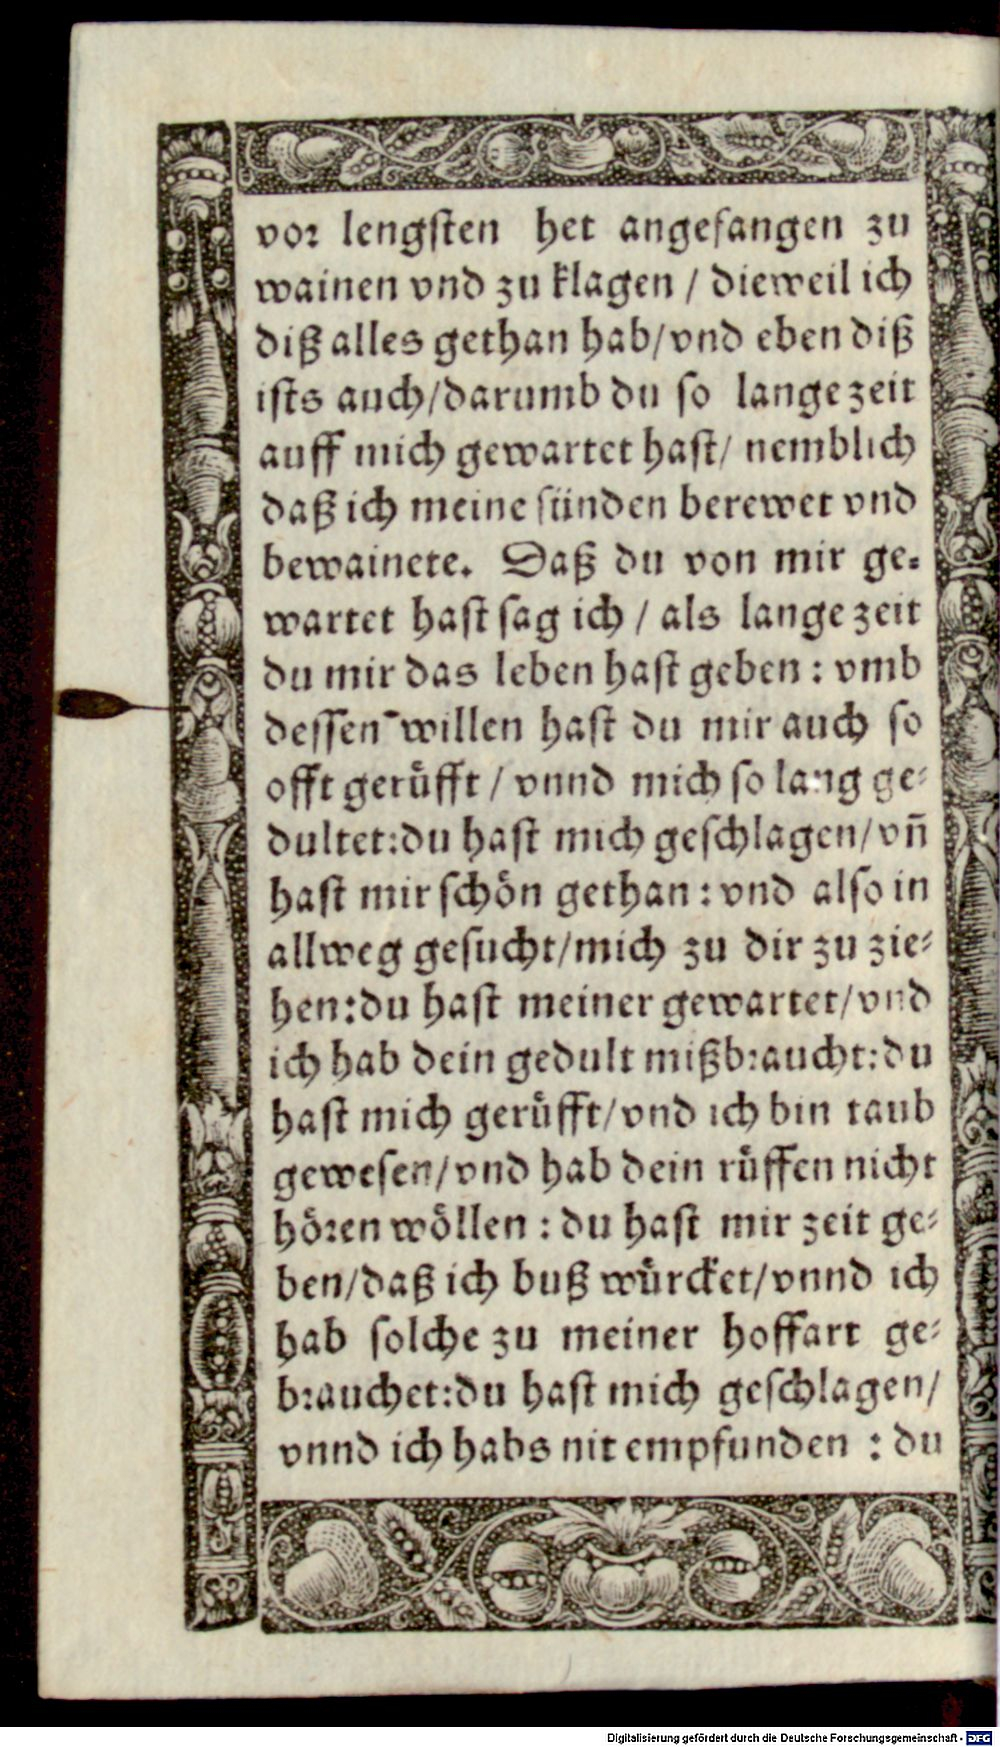 vor lengsten het angefangen zu
wainen vnd zu klagen / dieweil ich
diß alles gethan hab/vnd eben diß
ists auch/darumb du so lange zeit
auff mich gewartet hast/ nemblich
daß ich meine sünden berewet vnd
bewainete. Daß du von mir ge-
wartet hast sag ich / als lange zeit
du mir das leben hast geben : vmb
dessen willen hast du mir auch so
offt gerůfft / vnnd mich so lang ge-
dultet:du hast mich geschlagen/vn̄
hast mir schön gethan : vnd also in
allweg gesucht/mich zu dir zu zie-
hen:du hast meiner gewartet/vnd
ich hab dein gedult mißbraucht:du
hast mich gerůfft/vnd ich bin taub
gewesen/vnd hab dein růffen nicht
hören wöllen : du hast mir zeit ge-
ben/daß ich buß würcket/vnnd ich
hab solche zu meiner hoffart ge-
brauchet:du hast mich geschlagen/
vnnd ich habs nit empfunden : du
Digitalisierung gefördert durch die Deutsche Forschungsgemeinschaft - DFG